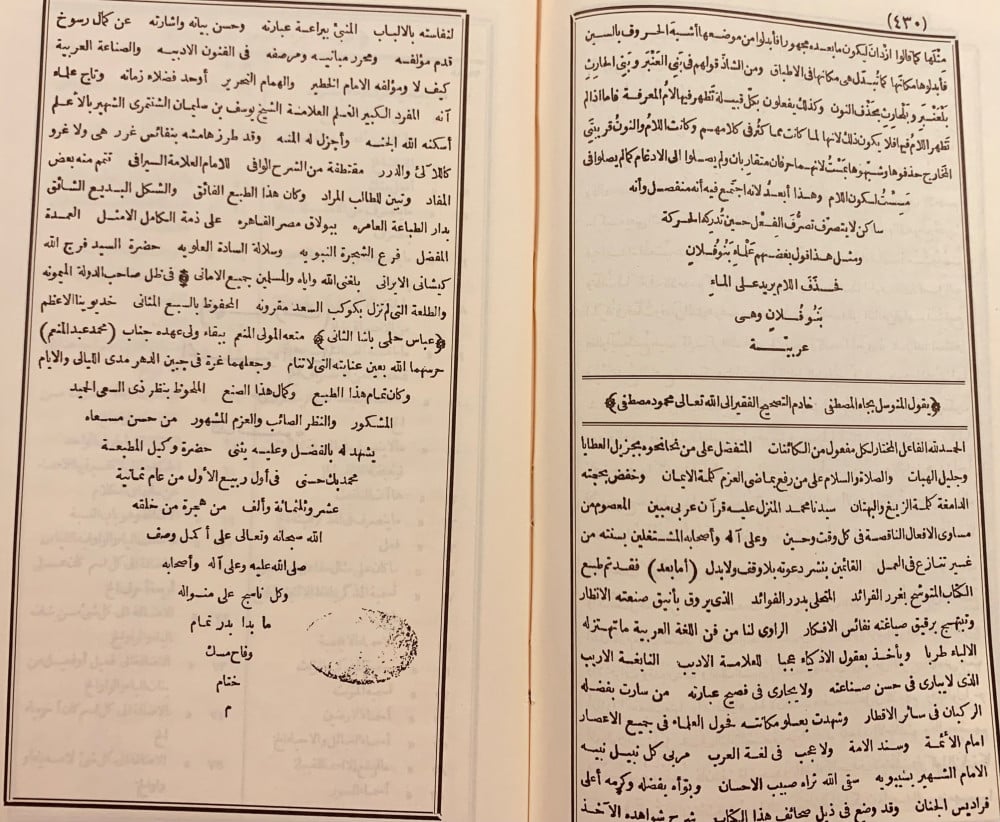 (٤٣٠)
مثلها كما قالوا ازدان ليكون ما بعده مجهورا فأبدلوا من موضعها أشبه الحروف بالسين
فأبدلوها مكانها كما تبدل هى مكانها فى الاطباق ومن الشاذ قولهم فى بنى العنبر وبنى الحارث
بلعنبر وبلحارث بحذف النون وكذلك يفعلون بكل قبيلة تظهر فيها لام المعرفة فأما اذا لم
تظهر اللام فيها فلا يكون ذلك لانها لما كانت مما كثر فى كلامهم وكانت اللام والنون قريبتى
المخارج حذفوها وشبهوها بمست لانهما حرفان متقاربان ولم يصلوا الى الادغام كما لم يصلوا فى
مسست لسكون اللام وهذا أبعد لانه اجتمع فيه أنه منفصل وأنه
ساكن لا يتصرف تصرف الفعل حين تدركه الحركة
ومثل هذا قول بعضهم علماء بنو فلان
فحذف اللام يريد على الماء
بنو فلان وهى
عربية
﴿يقول المتوسل بجاه المصطفى خادم التصحيح الفقير الى الله تعالى محمود مصطفى﴾
الحمد لله الفاعل المختار لكل مفعول من الكائنات المتفضل على من نحا نحوه بجزيل العطايا
وجليل الهبات والصلاة والسلام على من رفع بماضى العزم كلمة الايمان وخفض بحجته
الدامغة كلمة الزيغ والبهتان سيدنا محمد المنزل عليه قرآن عربى مبين المعصوم من
مساوى الافعال الناقصة فى كل وقت وحين وعلى آله وأصحابه المشتغلين بسنته من
غير تنازع فى العمل القائمين بنشر دعوته بلا وقف ولا بدل (أما بعد) فقد تم طبع
الكتاب المتوشح بغرر الفرائد المتحلى بدرر الفوائد الذى يروق بأنيق صنعته الانظار
وتبتهج برقيق صياغته نفائس الافكار الراوى لنا من فن اللغة العربية ما تهتز له
الالباء طربا ويأخذ بعقول الاذكياء عجبا للعلامة الاديب النابغة الاريب
الذى لا يبارى فى حسن صناعته ولا يجارى فى فصيح عبارته من سارت بفضله
الركبان فى سائر الاقطار وشهدت بعلو مكانته فحول العلماء فى جميع الاعصار
امام الائمة وسند الامة ولا عجب فى لغة العرب مربى كل نبيل نبيه
الامام الشهير بسيبويه سقى الله ثراه صبيب الاحسان وبوأه بفضله وكرمه أعلى
فراديس الجنان وقد وضع فى ذيل صحائف هذا الكتاب شرح شواهده الآخذ
لنفاسته بالالباب المنبئ ببراعة عبارته وحسن بيانه واشارته عن كمال رسوخ
قدم مؤلفه ومحرر مبانيه ومرصفه فى الفنون الادبيه والصناعة العربية
كيف لا ومؤلفه الامام الخطير والهمام النحرير أوحد فضلاء زمانه وتاج علماء
آنه المفرد الكبير العلم العلامة الشيخ يوسف بن سليمان الشنتمرى الشهير بالأعلم
أسكنه الله الجنه وأجزل له المنه وقد طرز هامشه بنفائس غرر هى ولا غرو
كاللآلئ والدرر مقتطفة من الشرح الوافى للامام العلامة السيرافى تتمم منه بعض
المفاد وتبين للطالب المراد وكان هذا الطبع الفائق والشكل البديع الشائق
بدار الطباعة العامره ببولاق مصر القاهره على ذمة الكامل الامثل العمدة
المفضل فرع الشجرة النبويه وسلالة السادة العلويه حضرة السيد فرج الله
كيشانى الايرانى بلغنى الله واياه والمسلمين جميع الامانى ﴿ فى ظل صاحب الدولة الميمونه
والطلعة التى لم تزل بكوكب السعد مقرونه المحفوظ بالسبع المثانى خديوينا الاعظم
﴿عباس حلمى باشا الثانى﴾ متعه المولى المنعم ببقاء ولى عهده جناب (محمد عبد المنعم)
حرسهما الله بعين عنايته التى لا تنام وجعلهما غرة فى جبين الدهر مدى الليالى والايام
وكان تمام هذا الطبع وكمال هذا الصنع الملحوظ بنظر ذى السعى الحميد
المشكور والنظر الصائب والعزم المشهور من حسن مسعاه
يشهد له بالفضل وعليه يثنى حضرة وكيل المطبعة
محمد بك حسنى فى أول ربيع الأول من عام ثمانية
عشر وثلثمائة وألف من هجرة من خلقه
الله سبحانه وتعالى على أكمل وصف
صلى الله عليه وعلى آله وأصحابه
وكل ناسج على منواله
ما بدا بدر تمام
وفاح مسك
ختام
م